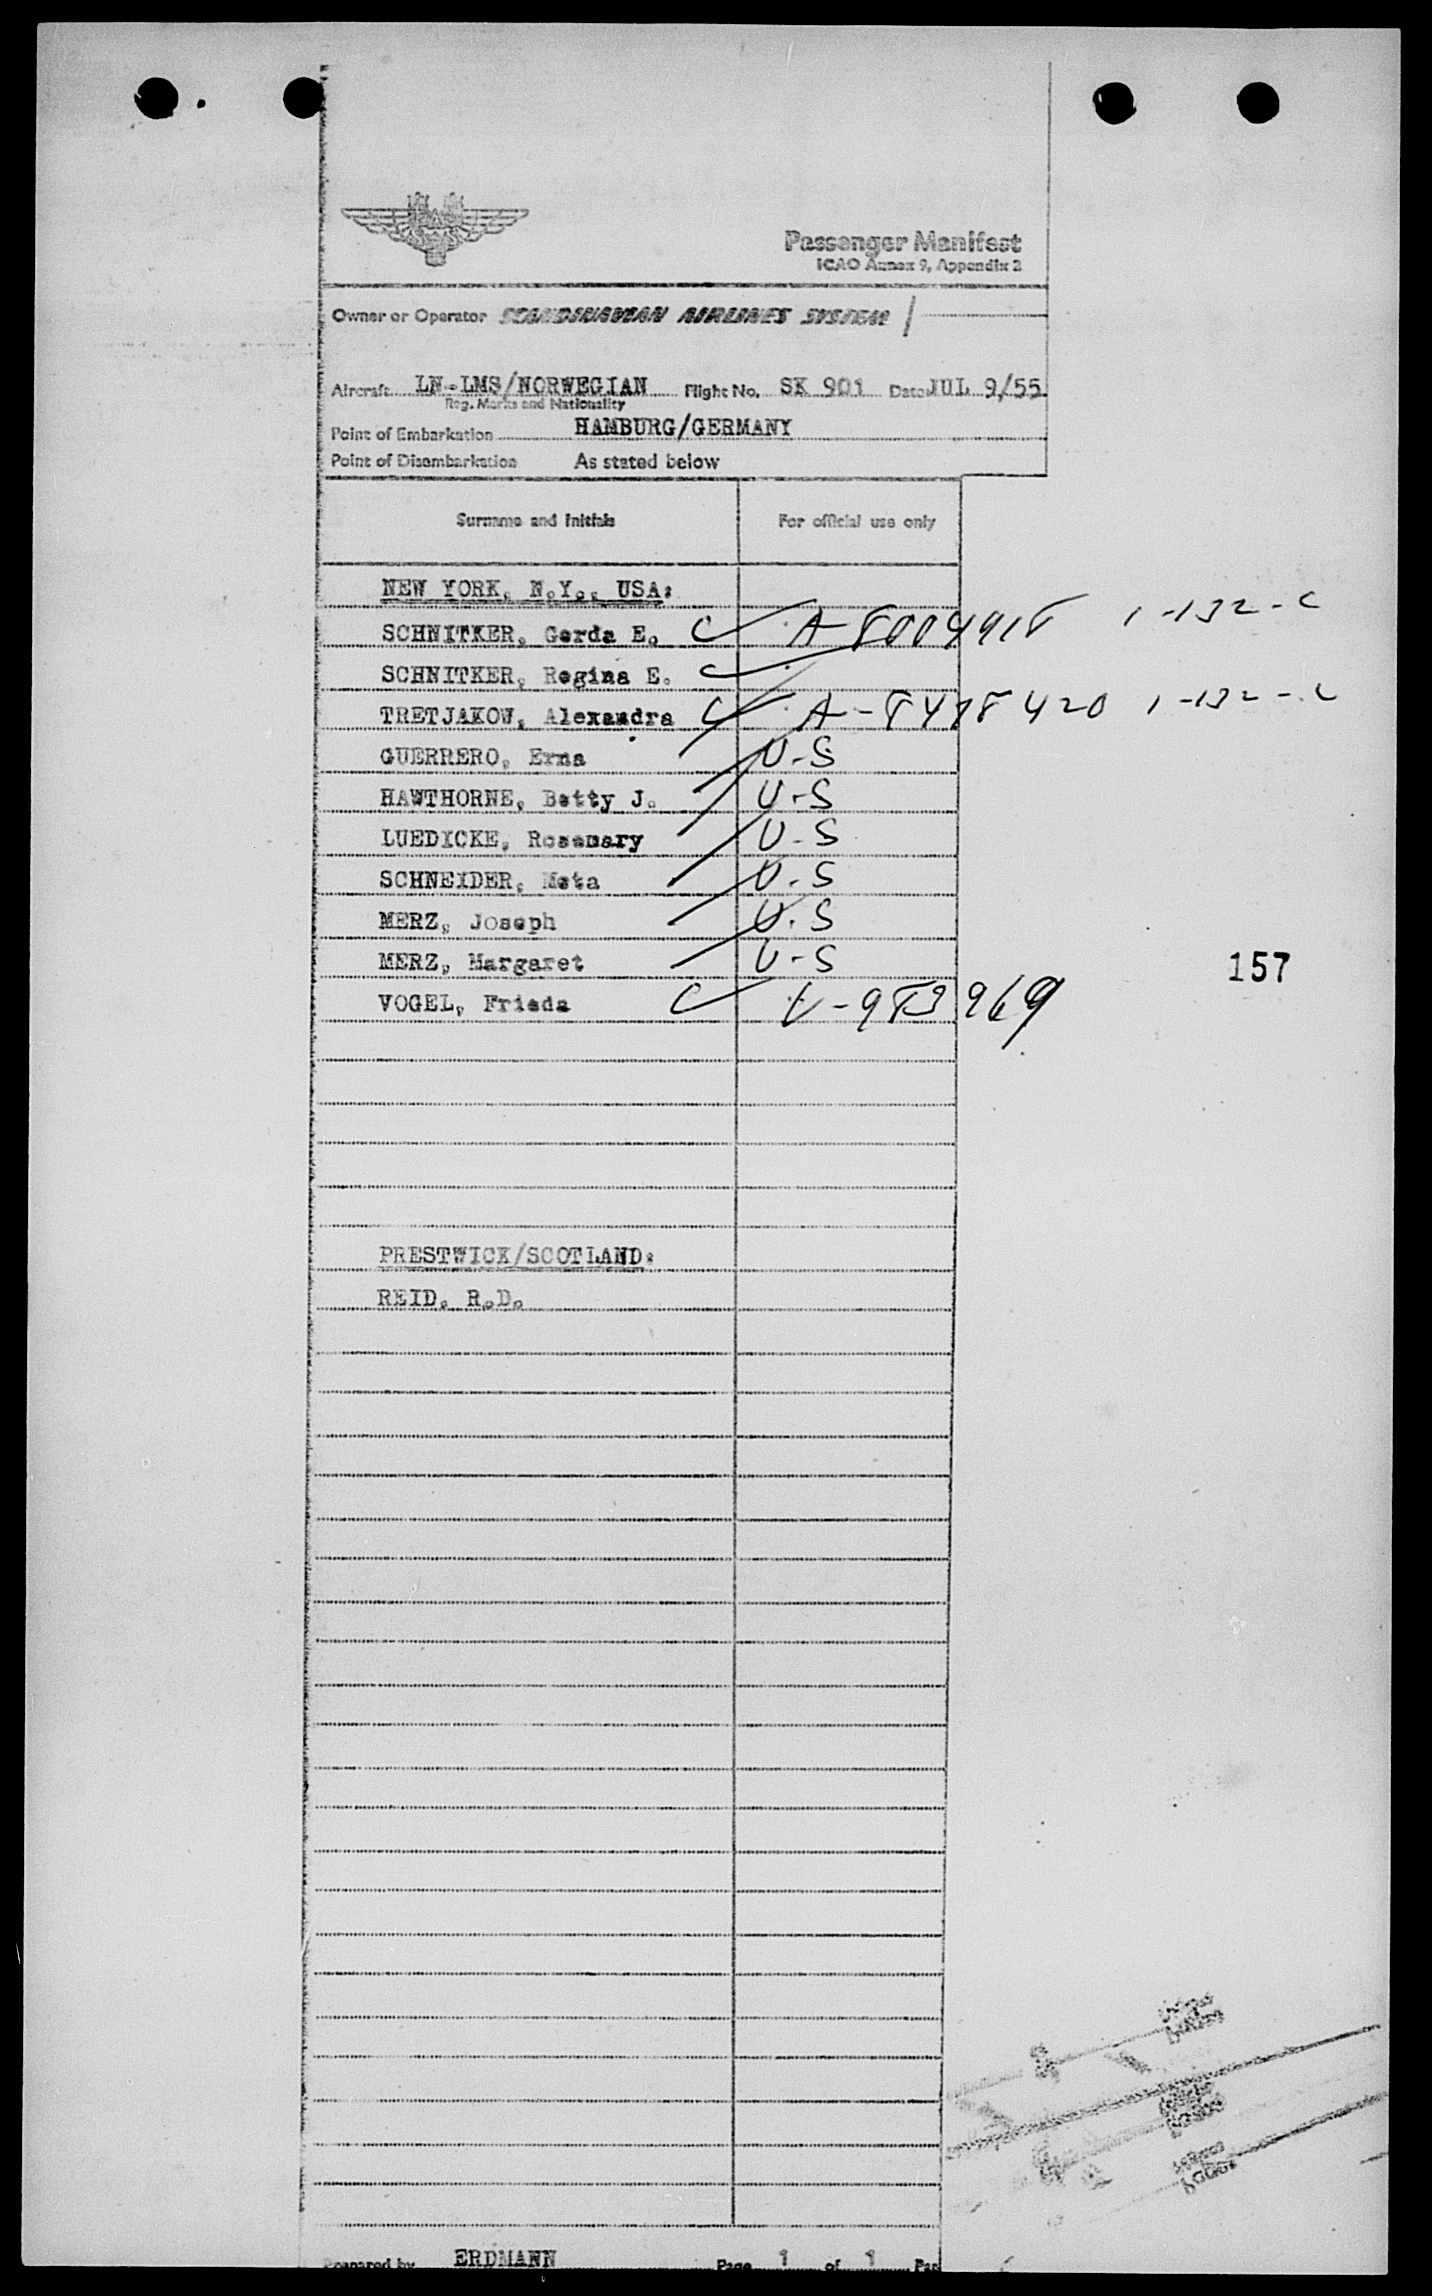 Passenger Manifest
ICAO Annex 9, Appendix 2
Owner or Operator SCANDINAVIAN AIRLINES SYSTEM
Aircraft LN-LMS/NORWEGIAN Flight No. SK 901 Date JUL 9/55
Reg. Marks and Nationality
Point of Embarkation HAMBURG/GERMANY
Point of Disembarkation As stated below
Surname and Initials For official use only
NEW YORK, N.Y., USA:
SCHNITKER, Gerda E. C A-8004918 1-132-C
SCHNITKER, Regina E. C
TRETJAKOW, Alexandra C A-8478420 1-132-C
GUERRERO, Erna U-S
HAWTHORNE, Betty J. U-S
LUEDICKE, Rosemary U-S
SCHNEIDER, Meta U-S
MERZ, Joseph U-S
MERZ, Margaret U-S
157
VOGEL, Frieda C V-983969
PRESTWICK/SCOTLAND:
REID, R.D.
Prepared by ERDMANN Page 1 of 1